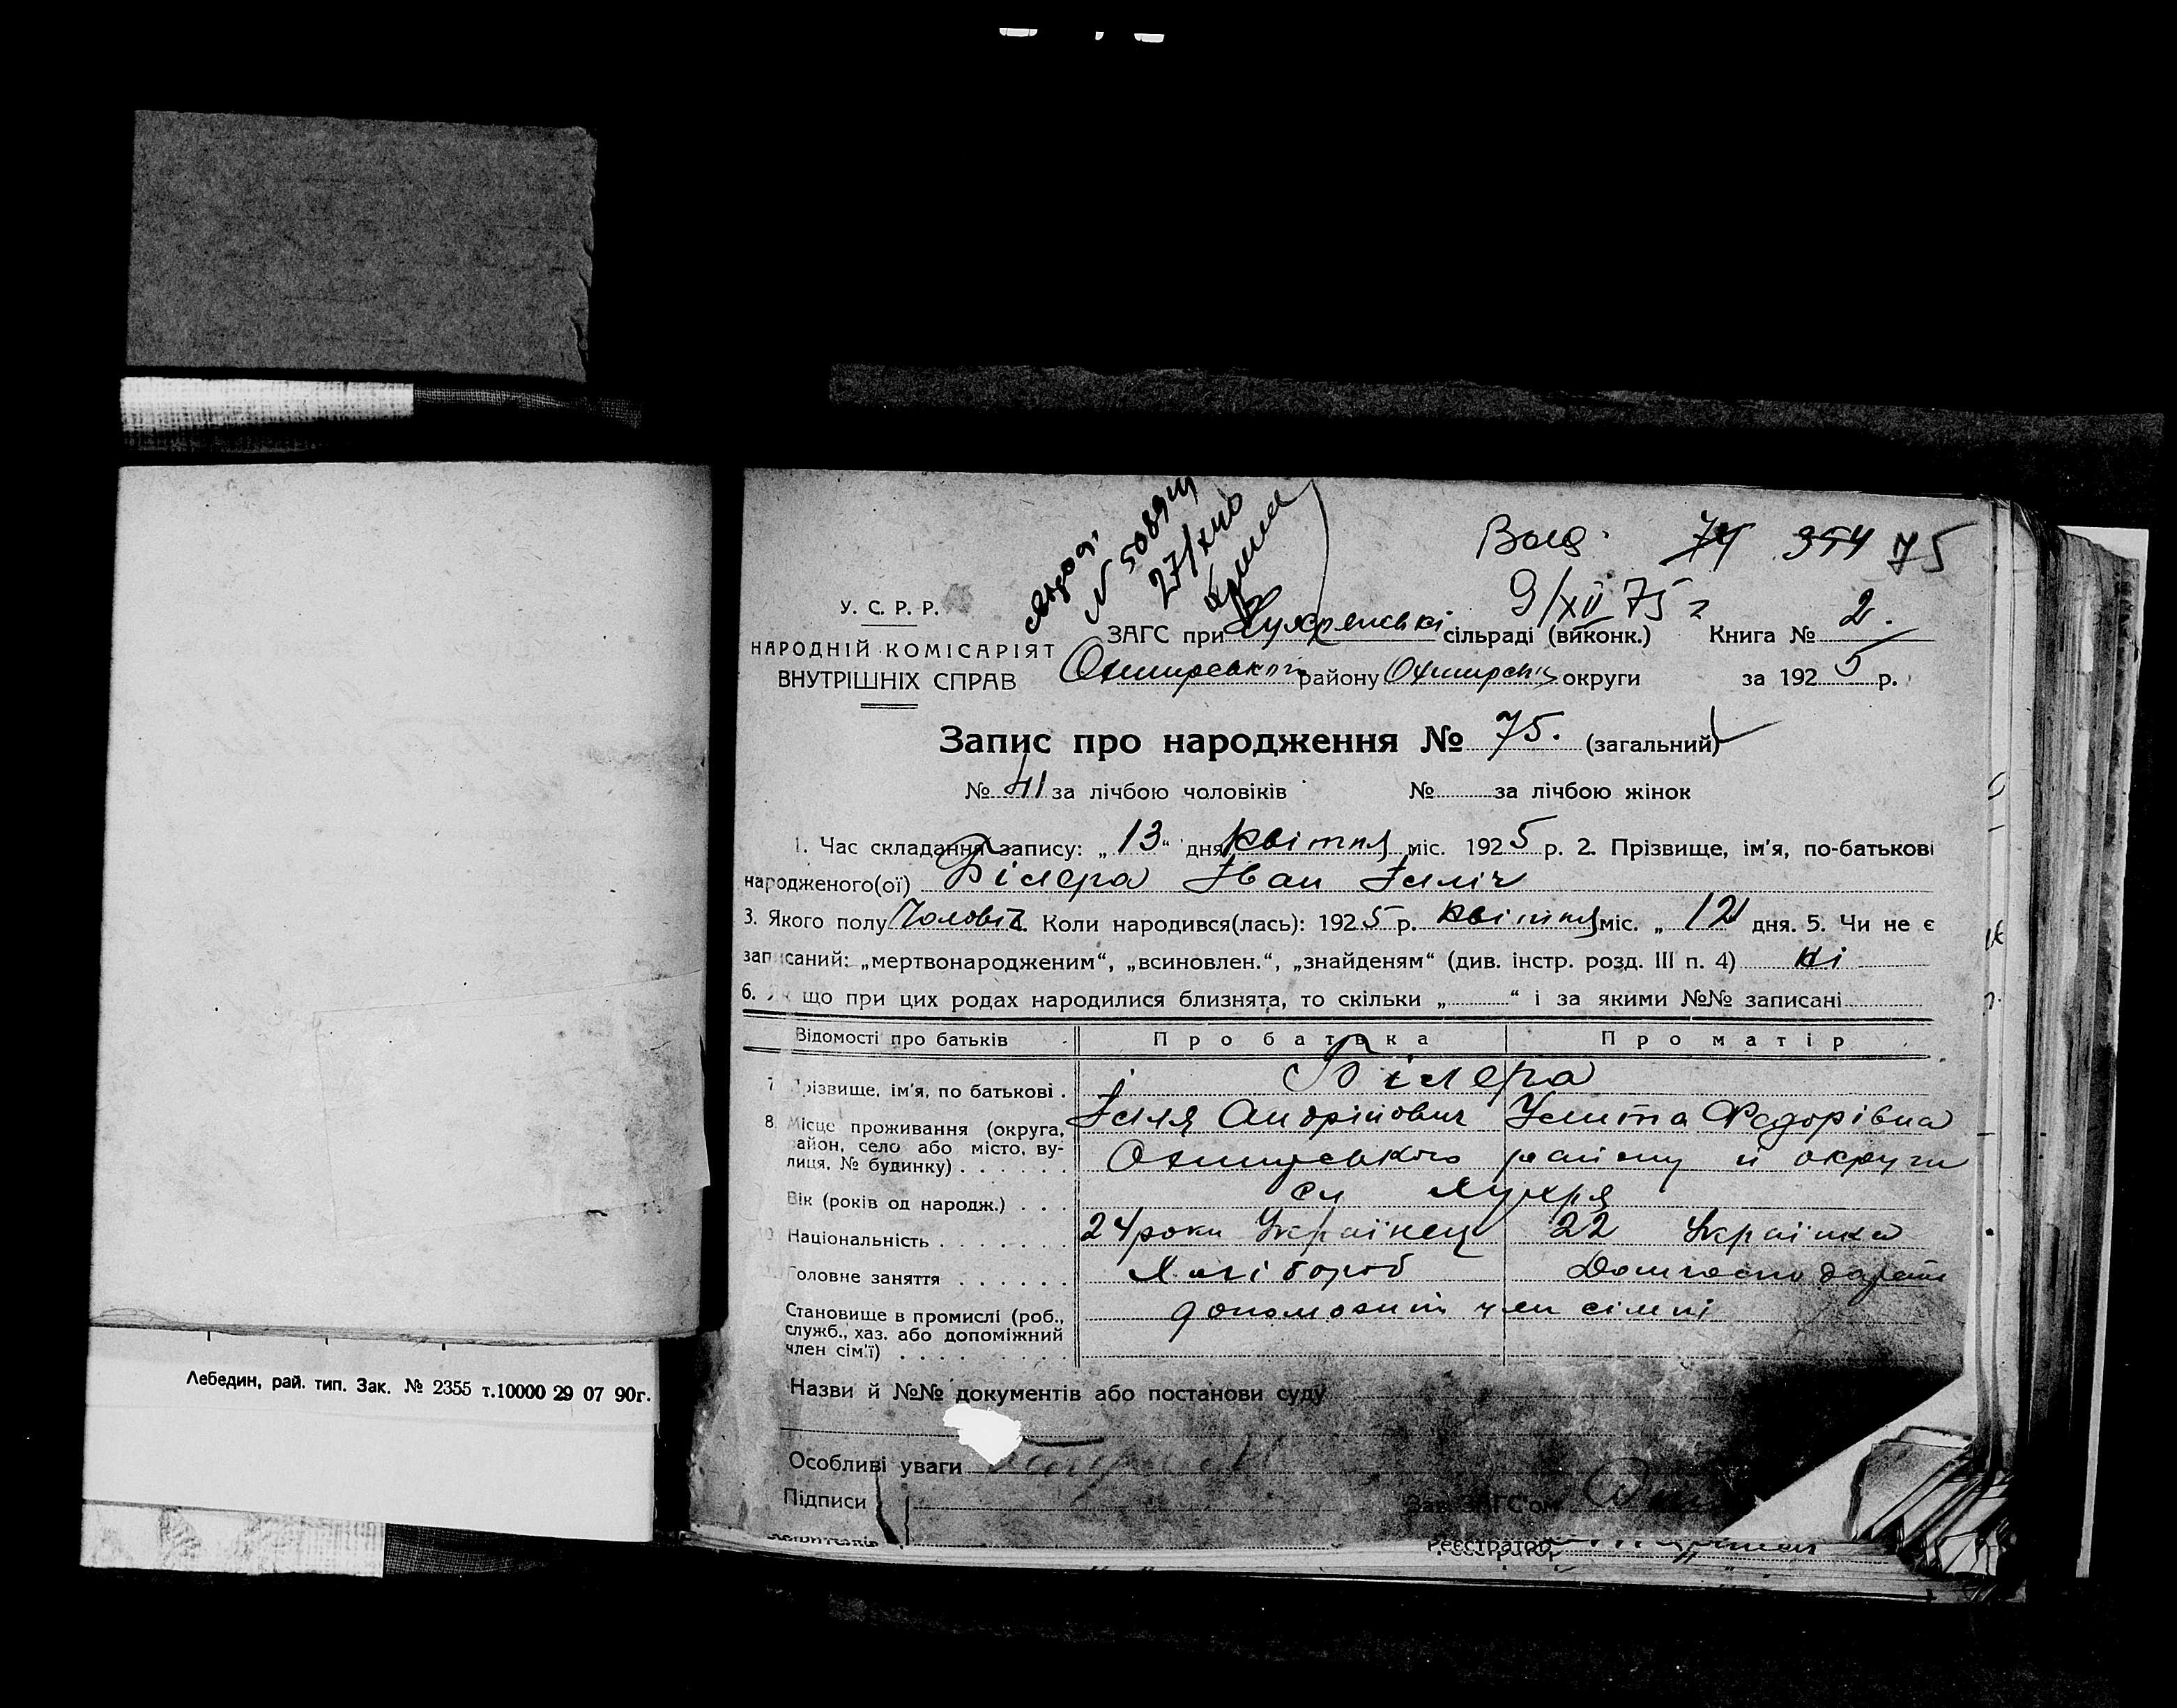 Выд. 74 354 75
9/XII 75 г
№ 5089
У. С. Р. Р.
НАРОДНІЙ КОМІСАРІЯТ
ВНУТРІШНІХ СПРАВ
ЗАГС при сільраді (виконк.) Книга № 2.
Охтирського району Охтирськ округи за 1925 р.
Запис про народження № 75. (загальний)
№ 41 за лічбою чоловіків № за лічбою жінок
1. Час складання запису: „13“ дня квітня міс. 1925 р. 2. Прізвище, ім'я, по-батькові
народженого(ої) Білера Іван Ілліч
3. Якого полу Чоловіч. Коли народився(лась): 1925 р. квітня міс. „12 дня. 5. Чи не є
записаний: „мертвонародженим“, „всиновлен.“, „знайденям“ (див. інстр. розд. III п. 4) ні
6. Як що при цих родах народилися близнята, то скільки „ “ і за якими №№ записані
Відомості про батьків Про батька Про матір
7. Прізвище, ім'я, по батькові . Білера
Ілля Андрійович Улита Федорівна
8. Місце проживання (округа, район, село або місто, вулиця, № будинку) . . . . . . Охтирського району й округи
с Хухря
Вік (років од народж.) . . . 24 роки 22
Національність . . . . . . . Українець Українка
Головне заняття . . . . . . Хлібороб
Становище в промислі (роб., служб., хаз. або допоміжний член сім'ї) . . . . . . . . допоможний член сімпі
Назви й №№ документів або постанови суду
Особливі уваги
Підписи Зав. ЗАГС'ом
Реєстратор
Лебедин, рай. тип. Зак. № 2355 т.10000 29 07 90г.